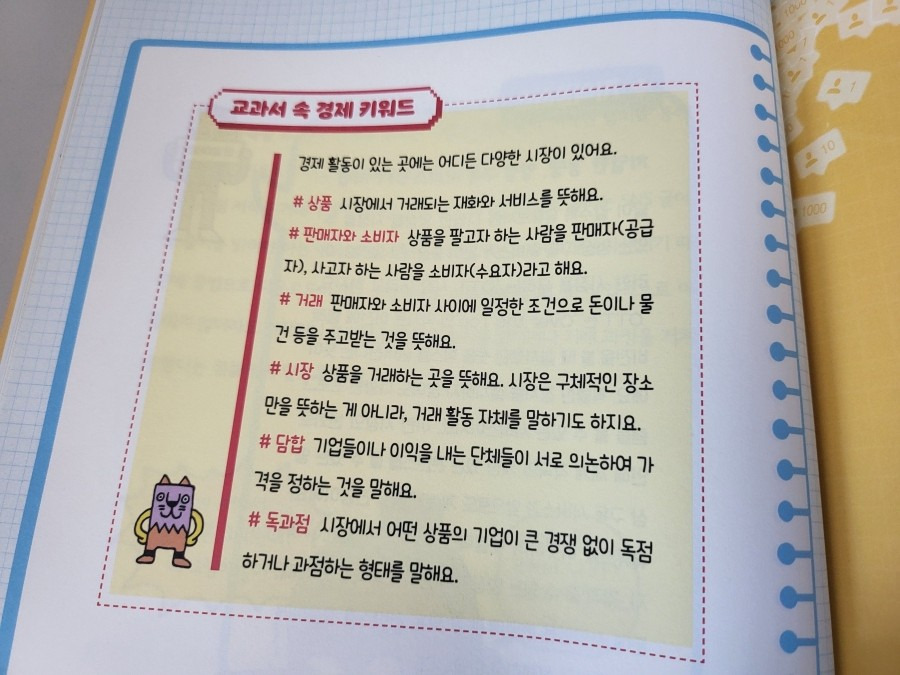 교과서 속 경제 키워드
경제 활동이 있는 곳에는 어디든 다양한 시장이 있어요.
# 상품 시장에서 거래되는 재화와 서비스를 뜻해요.
# 판매자와 소비자 상품을 팔고자 하는 사람을 판매자(공급
자), 사고자 하는 사람을 소비자(수요자)라고 해요.
# 거래 판매자와 소비자 사이에 일정한 조건으로 돈이나 물
건 등을 주고받는 것을 뜻해요.
# 시장 상품을 거래하는 곳을 뜻해요. 시장은 구체적인 장소
만을 뜻하는 게 아니라, 거래 활동 자체를 말하기도 하지요.
# 담합 기업들이나 이익을 내는 단체들이 서로 의논하여 가
격을 정하는 것을 말해요.
# 독과점 시장에서 어떤 상품의 기업이 큰 경쟁 없이 독점
하거나 과점하는 형태를 말해요.
1
10
1000